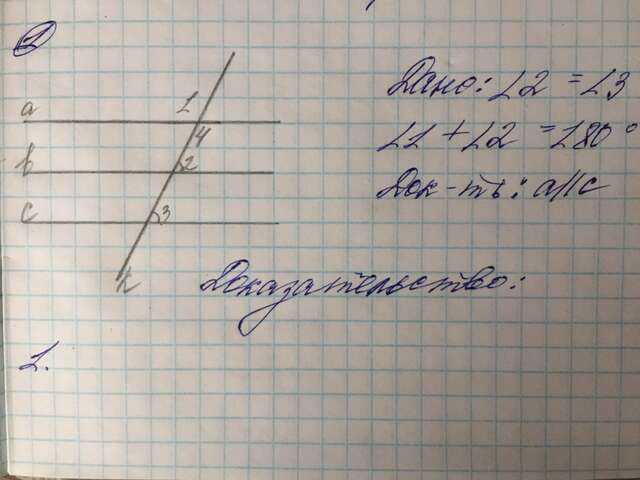 1
a
1
4
b
2
c
3
k
Дано: ∠2 = ∠3
∠1 + ∠2 = 180°
Док-ть: a∥c
Доказательство:
1.